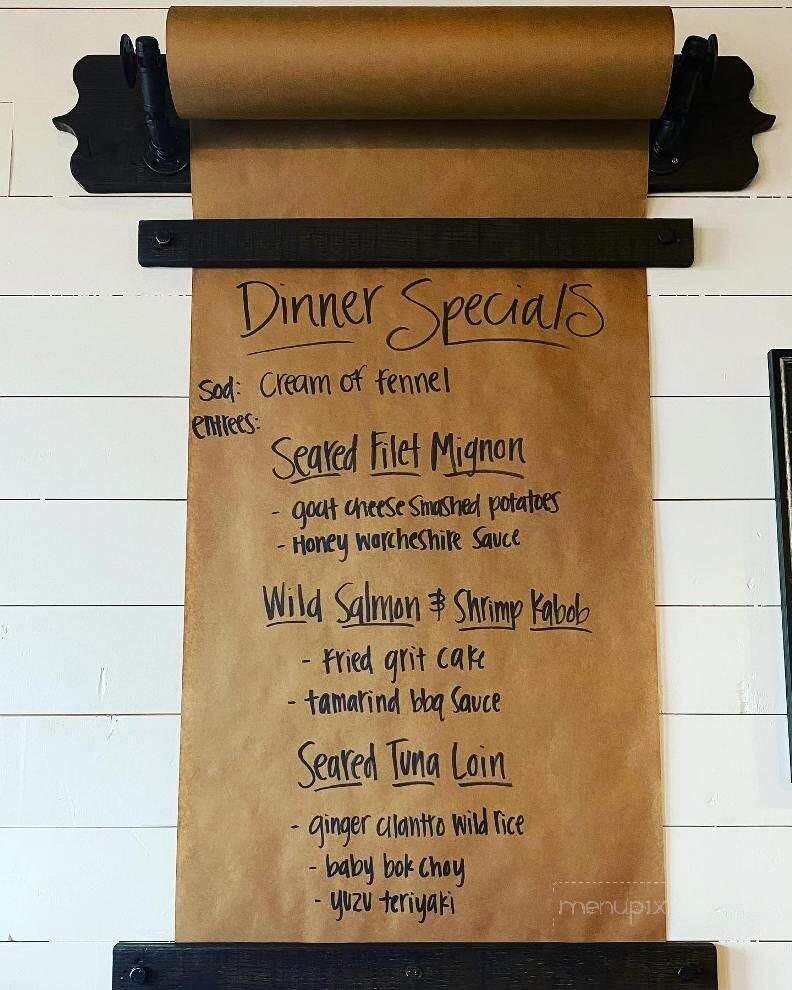 Dinner Specials
Sod: Cream of Fennel
entrees:
Seared Filet Mignon
- goat cheese smashed potatoes
- Honey worcheshire sauce
Wild Salmon & Shrimp Kabob
- Fried grit cake
- tamarind bbq Sauce
Seared Tuna Loin
- ginger cilantro wild rice
- baby bok choy
- yuzu teriyaki
menupix